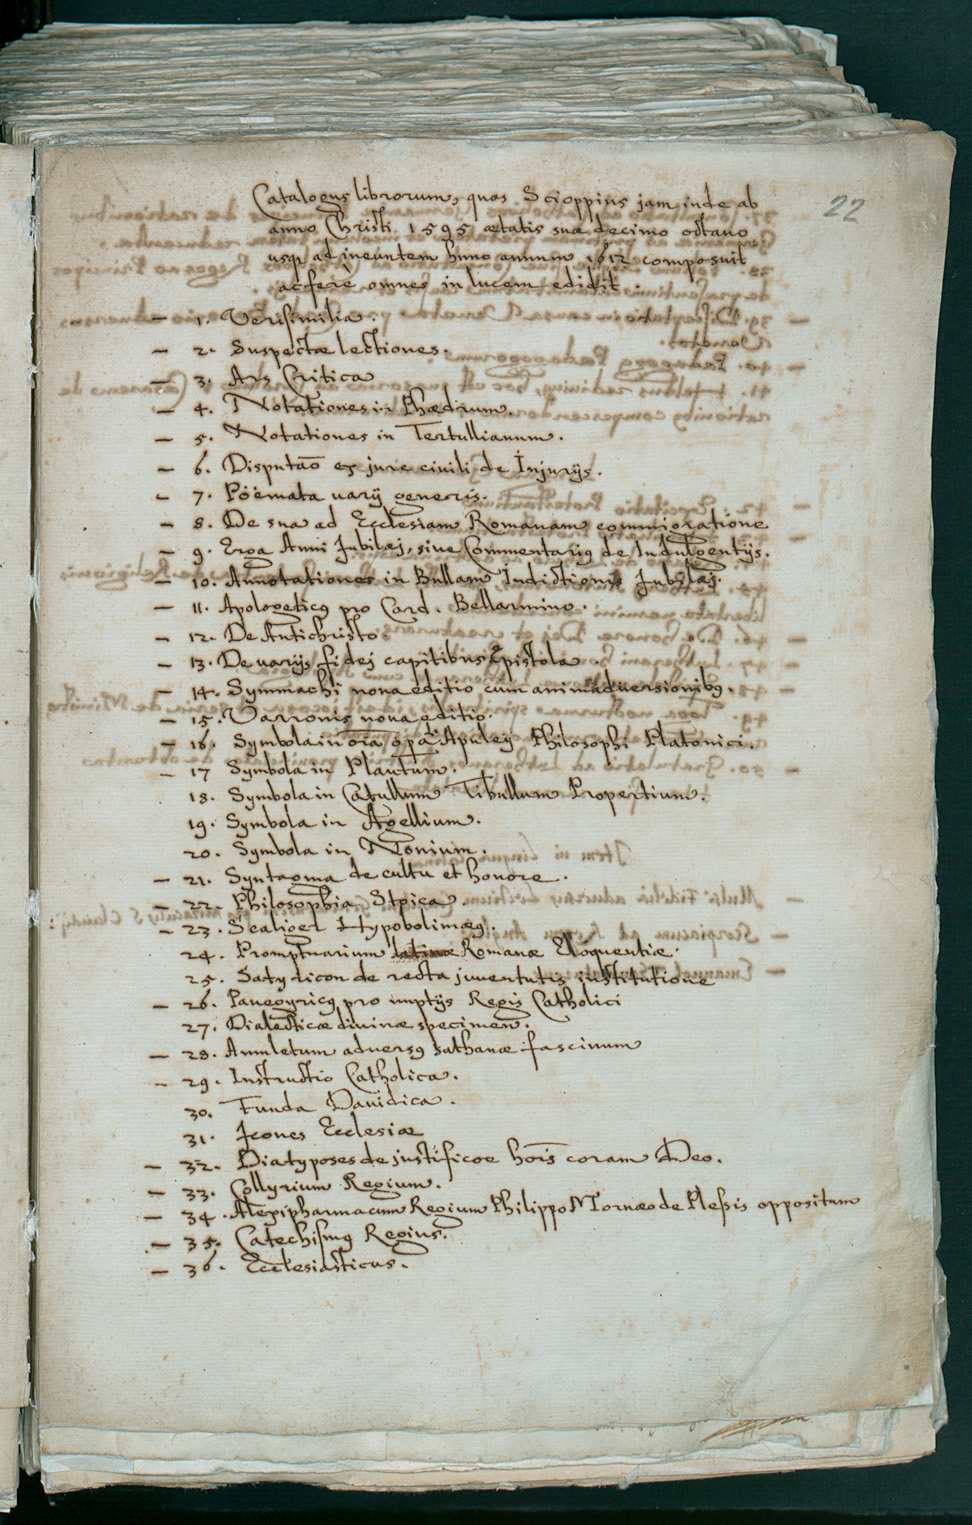 22
Catalogus librorum, quos Scioppius jam inde ab
anno Christi 1595 ætatis suæ decimo octavo
usq; ad ineuntem hunc annum 1612 composuit
ac ferè omnes in lucem edidit.
– 1. Verisimilia.
– 2. Suspectæ lectiones.
– 3. Ars Critica
– 4. Notationes in Phædrum.
– 5. Notationes in Tertullianum.
– 6. Disputaō ex jure civili de Injurijs.
– 7. Poëmata varij generis.
– 8. De sua ad Ecclesiam Romanam commigratione
– 9. Erga Anni Jubilej, sive Commentariꝰ de Indulgentijs.
– 10. Annotationes in Bullam Indictionis Jubilæj.
– 11. Apologeticꝰ pro Card. Bellarmino.
– 12. De Antichristo.
– 13. De varijs fidej capitibus Epistola.
– 14. Symmachi nova editio cum animadversionibꝰ.
– 15. Varronis nova editio.
– 16. Symbola in oīa opā Apuleij Philosophi Platonici.
– 17 Symbola in Plautum.
18. Symbola in Catullum Tibullum Propertium.
19. Symbola in Agellium.
20. Symbola in Nonium.
– 21. Syntagma de cultu et honore.
– 22. Philosophia Stoica.
– 23. Scaliger Hypobolimæꝰ.
24. Promptuarium latinæ Romanæ Eloquentiæ.
25. Satyricon de recta juventutis institutione
– 26. Panegyricꝰ pro nuptijs Regis Catholici
27. Dialecticæ divinæ specimen.
– 28. Amuletum adversꝰ sathanæ fascinum
– 29. Instructio Catholica.
30. Funda Davidica.
31. Icones Ecclesiæ
– 32. Diatyposes de justificōe hoīs coram Deo.
– 33. Collyrium Regium.
– 34. Alexipharmacum Regium Philippo Mornæo de Plessis oppositum
– 35. Catechismꝰ Regius.
– 36. Ecclesiasticus.